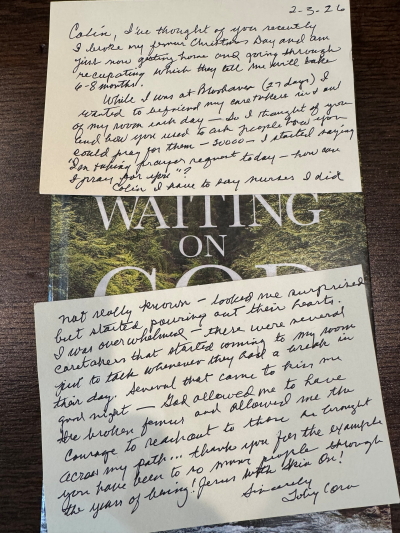 2-3-26
Colin, I've thought of you recently
I broke my femur Christmas Day and am
just now getting home and going through
recuperating which they tell me will take
6-8 months.
While I was at Brookhaven (27 days) I
wanted to befriend my caretakers in & out
of my room each day - So I thought of you
and how you used to ask people how you
could pray for them - sooo - I started saying
"I'm taking prayer request today - how can
I pray for you"?
Colin I have to say nurses I did
WAITING
ON
GOD
not really known - looked me surprised
but started pouring out their hearts.
I was overwhelmed - there were several
caretakers that started coming to my room
just to talk whenever they had a break in
their day. Several that came to kiss me
good night - God allowed me to have
the broken femur and allowed me the
courage to reach out to those he brought
across my path... thank you for the example
you have been to so many people through
the years of being "Jesus with Skin On!"
Sincerely
Toby